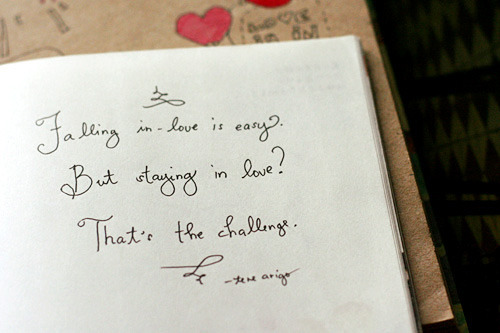 Falling in-love is easy.
But staying in love?
That's the challenge.
-tere arigo